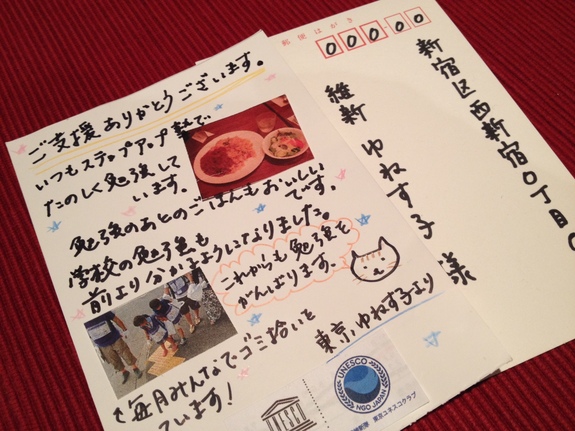 ご支援ありがとうございます。
いつもステップアップ塾で
たのしく勉強して
います。
勉強のあとのごはんもおいしい
です。
学校の勉強も
前より分かるようになりました。
これからも勉強を
がんばります。
東京ゆねす子より
↑毎月みんなでゴミ拾いを
ています!
UNESCO
UNESCO
NGO JAPAN
東京ユネスコクラブ
郵便はがき
000-00
新宿区西新宿0丁目0
維新 ゆねす子 様